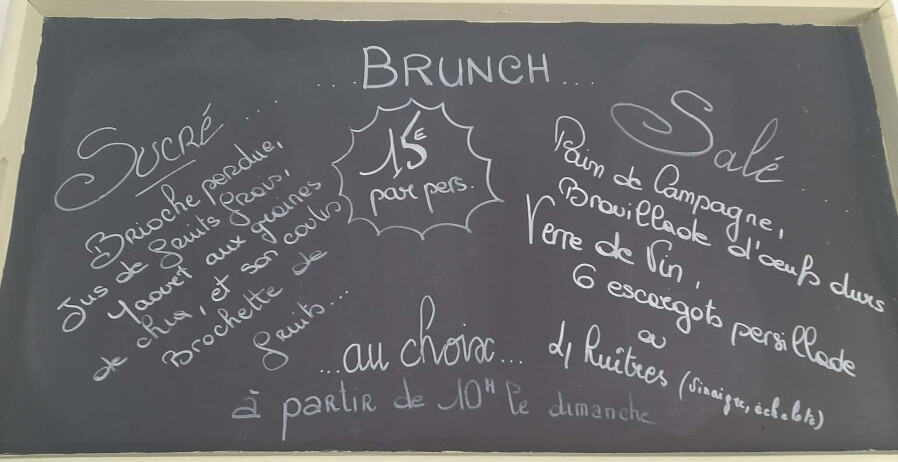 ...BRUNCH...
SUCRÉ....
Brioche perdue,
Jus de fruits frais,
Yaourt aux graines
de chia, et son coulis
Brochette de
fruits...
15€
par pers.
Salé
Pain de Campagne,
Brouillade d'oeufs durs
Verre de Vin,
6 escargots persillade
ou
4 huîtres (Vinaigre, échalote)
...au choix...
à partir de 10H le dimanche